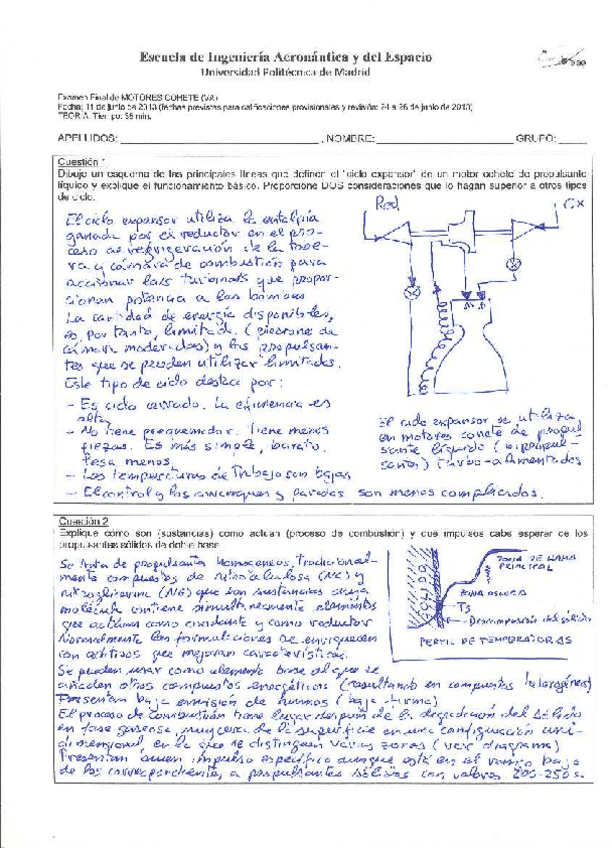 Escuela de Ingeniería Aeronáutica y del Espacio
Universidad Politécnica de Madrid
Examen Final de MOTORES COHETE (VA)
Fecha: 11 de junio de 2013 (fechas previstas para calificaciones provisionales y revisión: 24 a 26 de junio de 2013)
TEORÍA. Tiempo: 35 min.
APELLIDOS: , NOMBRE: GRUPO:
Cuestión 1
Dibuje un esquema de las principales líneas que definen el "ciclo expansor" de un motor cohete de propulsante
líquido y explique el funcionamiento básico. Proporcione DOS consideraciones que lo hagan superior a otros tipos
de ciclo.
Red. Ox
El ciclo expansor utiliza la entalpía
ganada por el reductor en el pro-
ceso de refrigeración de la tobe-
ra y cámara de combustión para
accionar las turbinas que propor-
cionan potencia a las bombas
La cantidad de energía disponible,
es, por tanto, limitada. (presiones de
cámara moderadas) y los propulsan-
tes que se pueden utilizar limitados.
Este tipo de ciclo destaca por:
- Es ciclo cerrado. La eficiencia es
alta
- No tiene prequemador. Tiene menos
piezas. Es más simple, barato.
Pesa menos
- Las temperaturas de trabajo son bajas
- El control y los arranques y paradas son menos complicados.
El ciclo expansor se utiliza
en motores cohete de propul
sante líquido (bipropul-
santes) turbo-alimentados
Cuestión 2
Explique cómo son (sustancias) como actúan (proceso de combustión) y que impulsos cabe esperar de los
propulsantes sólidos de doble base
Se trata de propulsantes homogéneos, tradicional-
mente compuestos de nitrocelulosa (NC) y
nitroglicerina (NG) que son sustancias cuya
molécula contiene simultáneamente elementos
que actúan como oxidante y como reductor
Normalmente las formulaciones se enriquecen
con aditivos que mejoran características.
Se pueden usar como elemento base al que se
añaden otros compuestos energéticos (resultando en compuestos heterogéneos)
Presentan baja emisión de humos (baja firma)
El proceso de combustión tiene lugar después de la degradación del sólido
en fase gaseosa, muy cerca de la superficie en una configuración uni-
dimensional, en la que se distinguen varias zonas (ver diagrama)
Presentan buen impulso específico aunque está en el rango bajo
de los correspondientes a propulsantes sólidos con valores 200-250 s.
SÓLIDO
ZONA DE LLAMA
PRINCIPAL
ZONA OSCURA
Ts
Descomposición del sólido
PERFIL DE TEMPERATURAS